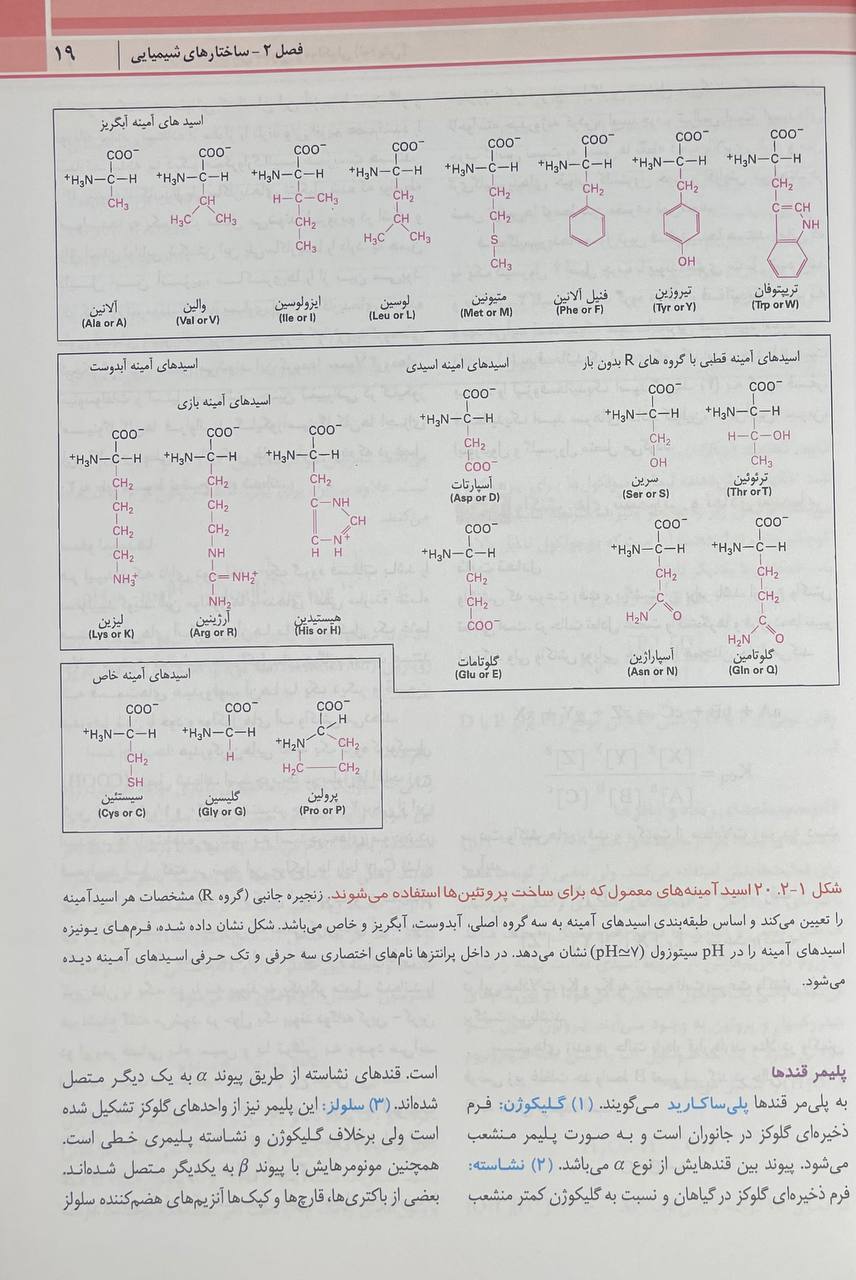 فصل ۲ - ساختارهای شیمیایی ۱۹
اسید های آمینه آبگریز
COO⁻ COO⁻ COO⁻ COO⁻ COO⁻ COO⁻ COO⁻ COO⁻
⁺H₃N–C–H ⁺H₃N–C–H ⁺H₃N–C–H ⁺H₃N–C–H ⁺H₃N–C–H ⁺H₃N–C–H ⁺H₃N–C–H ⁺H₃N–C–H
CH₃ CH H–C–CH₃ CH₂ CH₂ CH₂ CH₂ CH₂
H₃C CH₃ CH₂ CH CH₂ C=CH
CH₃ H₃C CH₃ S NH
CH₃ OH
آلانین والین ایزولوسین لوسین متیونین فنیل آلانین تیروزین تریپتوفان
(Ala or A) (Val or V) (Ile or I) (Leu or L) (Met or M) (Phe or F) (Tyr or Y) (Trp or W)
اسیدهای آمینه آبدوست
اسیدهای آمینه بازی
COO⁻ COO⁻ COO⁻
⁺H₃N–C–H ⁺H₃N–C–H ⁺H₃N–C–H
CH₂ CH₂ CH₂
CH₂ CH₂ C–NH
CH₂ CH₂ CH
CH₂ NH C–N⁺
NH₃⁺ C=NH₂⁺ H H
NH₂
لیزین آرژینین هیستیدین
(Lys or K) (Arg or R) (His or H)
اسیدهای امینه اسیدی
COO⁻
⁺H₃N–C–H
CH₂
COO⁻
آسپارتات
(Asp or D)
COO⁻
⁺H₃N–C–H
CH₂
CH₂
COO⁻
گلوتامات
(Glu or E)
اسیدهای آمینه قطبی با گروه های R بدون بار
COO⁻ COO⁻
⁺H₃N–C–H ⁺H₃N–C–H
CH₂ H–C–OH
OH CH₃
سرین ترئوئین
(Ser or S) (Thr or T)
COO⁻ COO⁻
⁺H₃N–C–H ⁺H₃N–C–H
CH₂ CH₂
C CH₂
H₂N O C
H₂N O
آسپاراژین گلوتامین
(Asn or N) (Gln or Q)
اسیدهای آمینه خاص
COO⁻ COO⁻ COO⁻
⁺H₃N–C–H ⁺H₃N–C–H C H
CH₂ H ⁺H₂N CH₂
SH H₂C CH₂
سیستئین گلیسین پرولین
(Cys or C) (Gly or G) (Pro or P)
شکل ۱-۲. ۲۰ اسید آمینه‌های معمول که برای ساخت پروتئین‌ها استفاده می‌شوند. زنجیره جانبی (گروه R) مشخصات هر اسیدآمینه
را تعیین می‌کند و اساس طبقه‌بندی اسیدهای آمینه به سه گروه اصلی، آبدوست، آبگریز و خاص می‌باشد. شکل نشان داده شده، فرم‌های یونیزه
اسیدهای آمینه را در pH سیتوزول (pH≃۷) نشان می‌دهد. در داخل پرانتزها نام‌های اختصاری سه حرفی و تک حرفی اسیدهای آمینه دیده
می‌شود.
پلیمر قندها
به پلی‌مر قندها پلی‌ساکارید می‌گویند. (۱) گلیکوژن: فرم
ذخیره‌ای گلوکز در جانوران است و به صورت پلیمر منشعب
می‌شود. پیوند بین قندهایش از نوع α می‌باشد. (۲) نشاسته:
فرم ذخیره‌ای گلوکز در گیاهان و نسبت به گلیکوژن کمتر منشعب
است. قندهای نشاسته از طریق پیوند α به یک دیگر متصل
شده‌اند. (۳) سلولز: این پلیمر نیز از واحدهای گلوکز تشکیل شده
است ولی برخلاف گلیکوژن و نشاسته پلیمری خطی است.
همچنین مونومرهایش با پیوند β به یکدیگر متصل شده‌اند.
بعضی از باکتری‌ها، قارچ‌ها و کپک‌ها آنزیم‌های هضم‌کننده سلولز